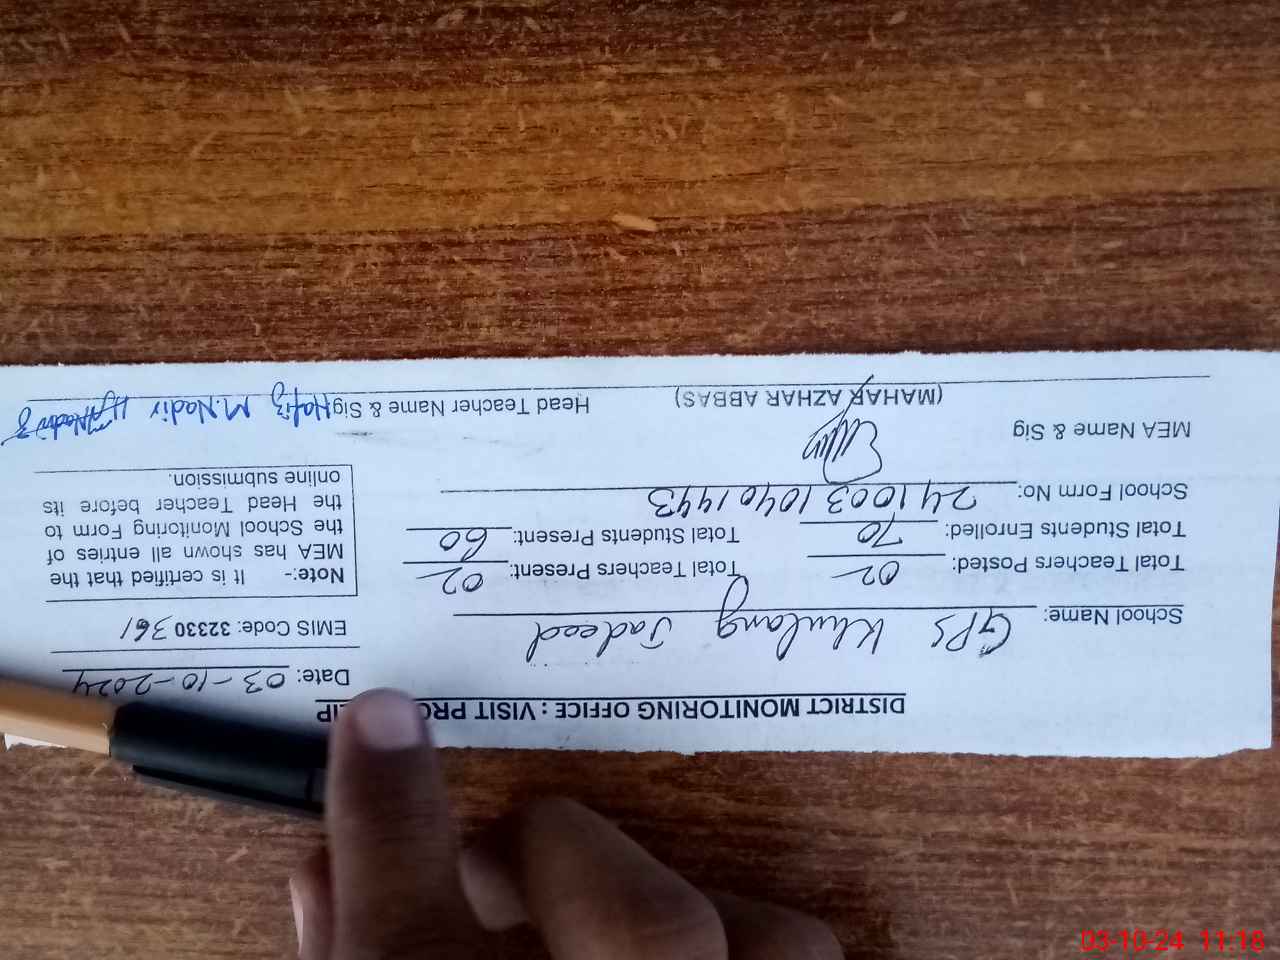 DISTRICT MONITORING OFFICE : VISIT
Date: 03-10-2024
School Name: GPS Khulang Jadeed
EMIS Code: 32330 361
Total Teachers Posted: 02 Total Teachers Present: 02
Total Students Enrolled: 70 Total Students Present: 60
School Form No: 241003 1040 1443
Note:- It is certified that the
MEA has shown all entries of
the School Monitoring Form to
the Head Teacher before its
online submission.
MEA Name & Sig
(MAHAR AZHAR ABBAS)
Head Teacher Name & Sig Hafiz M. Nadir
03-10-24 11:18